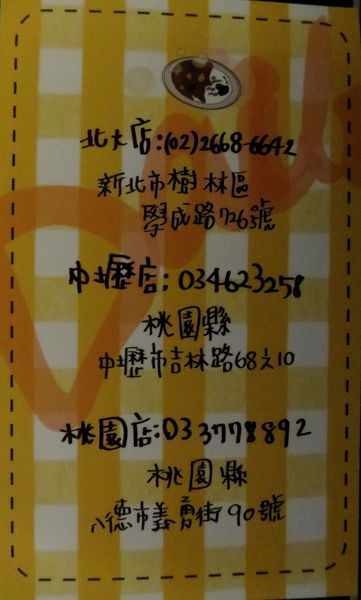 北大店:(02)2668-6642
新北市樹林區
學成路726號
中壢店:034623258
桃園縣
中壢市吉林路68之10
桃園店:033778892
桃園縣
八德市義勇街90號